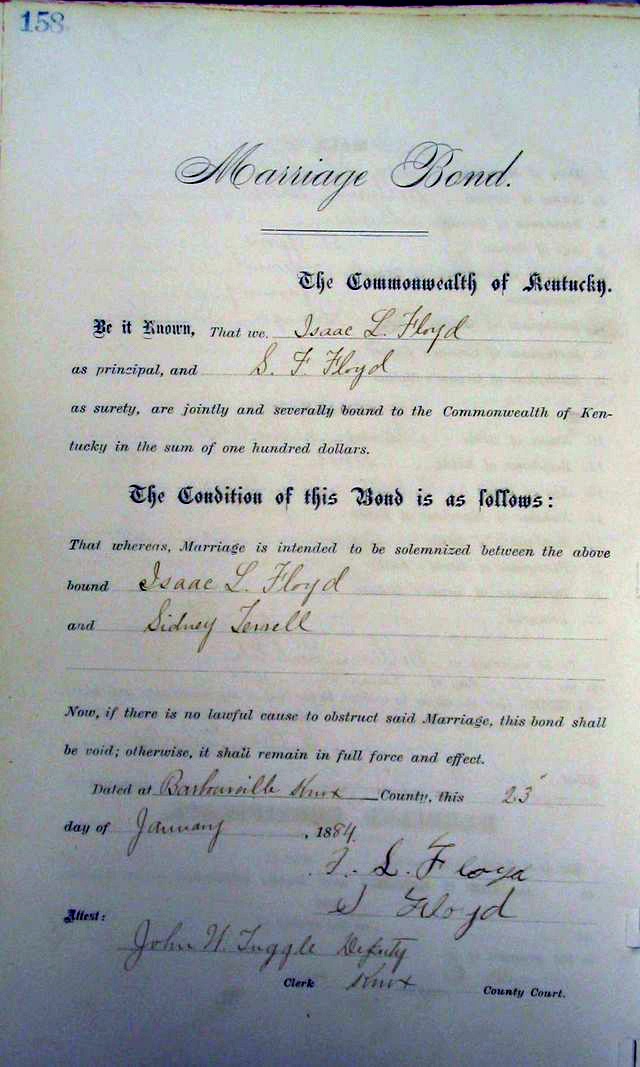 158
Marriage Bond.
The Commonwealth of Kentucky.
Be it Known, That we, Isaac L. Floyd
as principal, and S. F. Floyd
as surety, are jointly and severally bound to the Commonwealth of Ken-
tucky in the sum of one hundred dollars.
The Condition of this Bond is as follows:
That whereas, Marriage is intended to be solemnized between the above
bound Isaac L. Floyd
and Sidney Terrell
Now, if there is no lawful cause to obstruct said Marriage, this bond shall
be void; otherwise, it shall remain in full force and effect.
Dated at Barbourville Knox County, this 23
day of January, 1884.
L. Floyd
Floyd
Attest:
John H. Tuggle Deputy
Clerk Knox County Court.